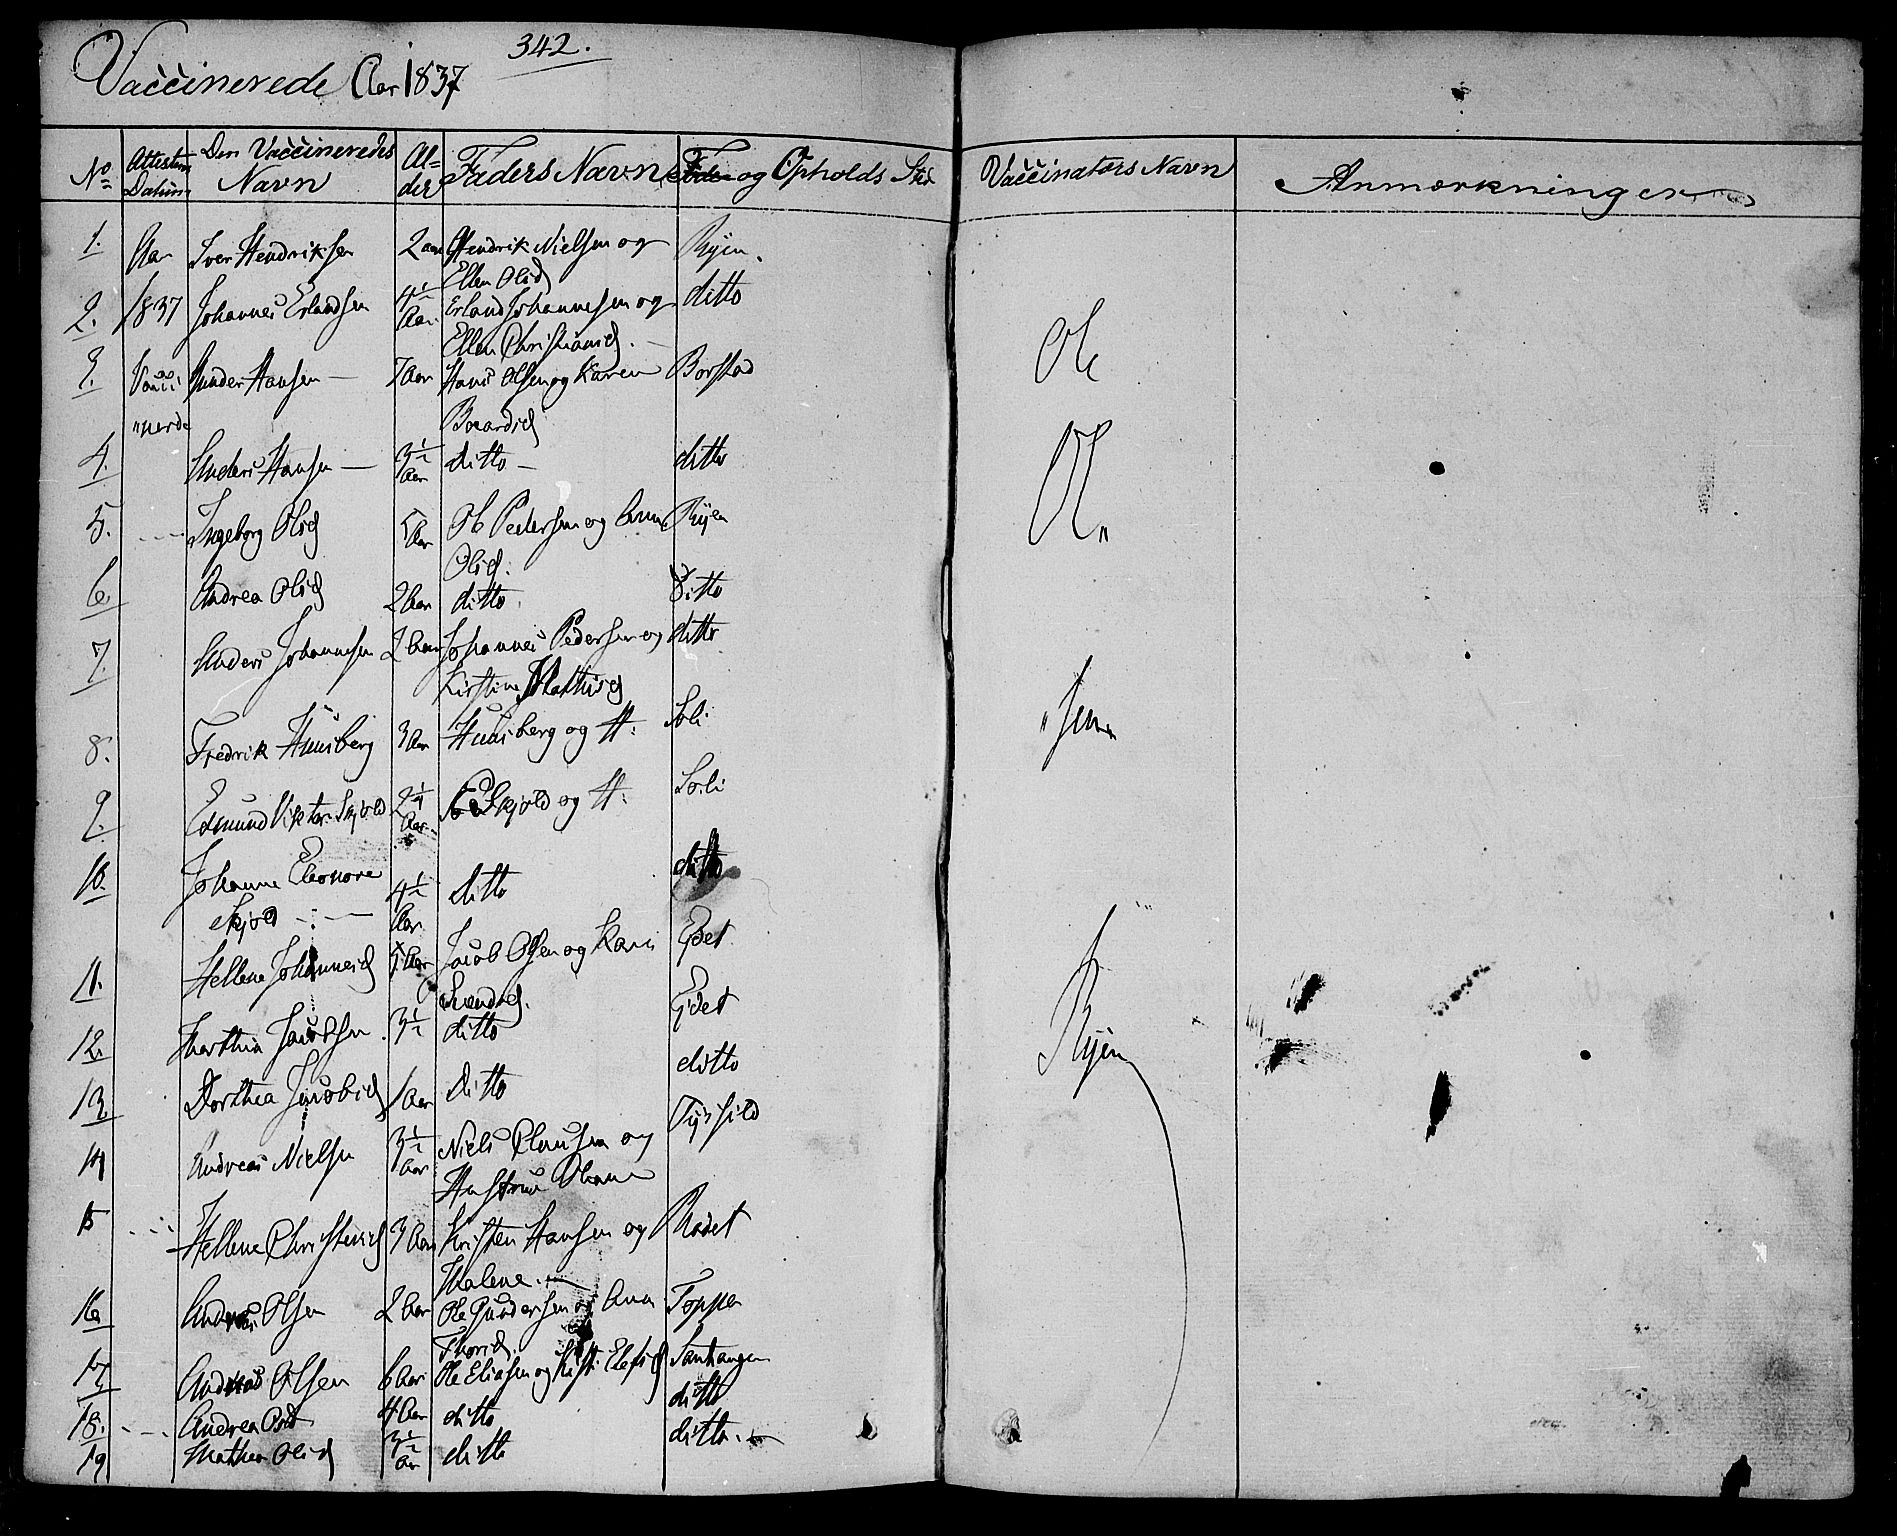 342.
Vaccinerede Aar 1837
No Attestens Datum Den Vaccineredes Navn Alder Faders Navn og Opholds Sted Vaccinators Navn Anmærkninger
1. Aar Iver Hendriksen 2 aar Hendrik Nielsen og Ryen.
Ellen Olsd
2. 1837 Johannes Erlandsen 4½ Aar Erland Johannesen og ditto
Ellen Christiansd.
3. Vacci Gunder Hansen 7 Aar Hans Olsen og Karen Borstad
"nerde Baardsd
4. Anders Hansen 3½ Aar ditto ditto
5. Ingeborg Olsd 5 Aar Ole Pedersen og Anne Ryen
Olsd.
6. Andrea Olsd 2 Aar ditto. ditto
7. Anders Johannesen 2 Aar Johannes Pedersen og ditto
Kirstine Mathisd
8. Fredrik Huusberg 3 Aar Huusberg og H: Soli
9. Edmund Viktor Skjold 2¼ Aar Skjold og H: Soli
10. Johanne Eleonore 4½ Aar ditto ditto
Skjold
11. Hellene Johannesd Aar Jacob Olsen og Kari Eydet
Svendsd.
12. Marthin Jacobsen. 3½ ditto Eydet
13. Dorthea Jacobsd 1 Aar Ditto ditto
14 Andreas Nielsen 3½ Aar Niels Clausen og Fyrsild
Hustrue Oleane
15 Hellene Christensd 3 Aar Kristen Hansen og Rodet
Malene.
16 Andreas Olsen 2 Aar Ole Gundersen og Anne Toppen
Thorsd.
17 Andreas Olsen 6 Aar Ole Eliasen og Kisti Elefsd Santangen
18. Andrea Olsd 4 Aar ditto ditto
19 Mathea Olsd 3½ Aar ditto ditto.
Ole
Ol"
"sen
Ryen